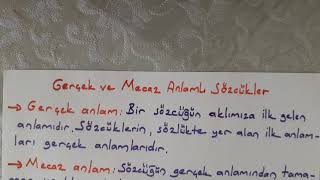 Gerçek ve Mecaz Anlamlı Sözcükler
→ Gerçek anlam: Bir sözcüğün aklımıza ilk gelen
anlamıdır. Sözcüklerin, sözlükte yer alan ilk anlam-
ları gerçek anlamlarıdır.
→ Mecaz anlam: Sözcüğün gerçek anlamından tama-